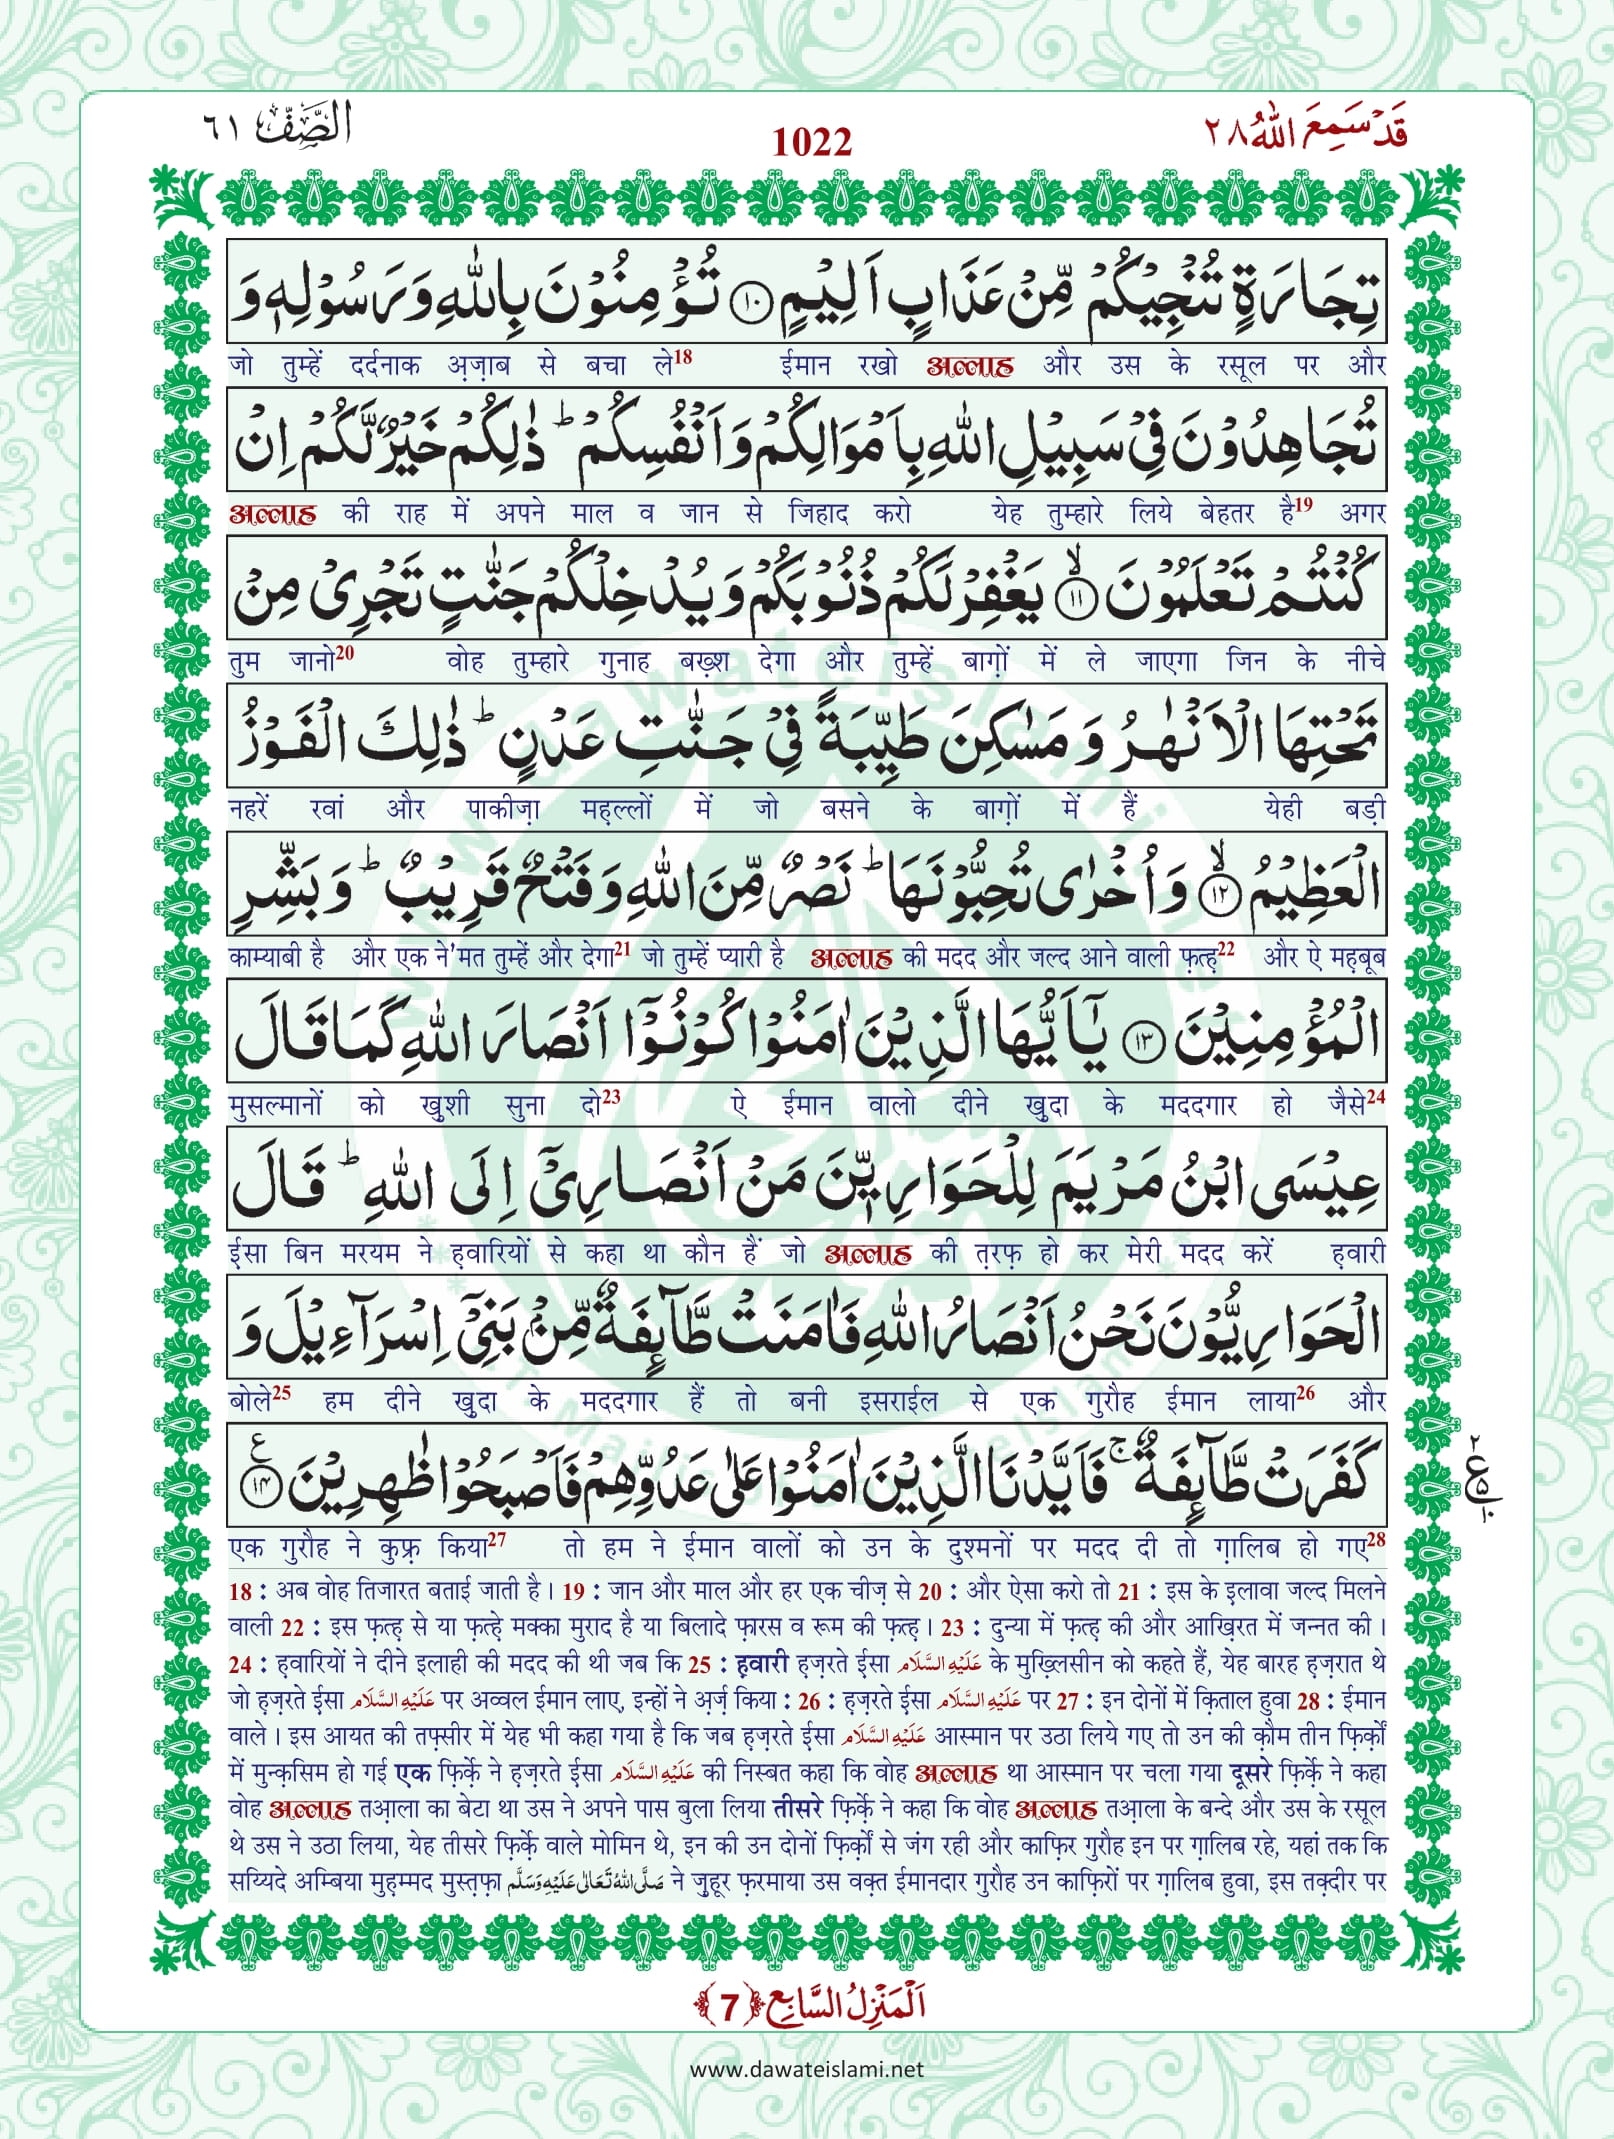 قَدۡسَمِعَ اللّٰهُ ٢٨
1022
الصَّفّ ٦١
تِجَارَةٍ تُنْجِيْكُمْ مِّنْ عَذَابٍ اَلِيْمٍ ﴿١٠﴾ تُؤْمِنُوْنَ بِاللّٰهِ وَرَسُوْلِهٖ وَ
जो तुम्हें दर्दनाक अ़ज़ाब से बचा ले18 ईमान रखो अल्लाह और उस के रसूल पर और
تُجَاهِدُوْنَ فِیْ سَبِيْلِ اللّٰهِ بِاَمْوَالِكُمْ وَاَنْفُسِكُمْ ؕ ذٰلِكُمْ خَيْرٌ لَّكُمْ اِنْ
अल्लाह की राह में अपने माल व जान से जिहाद करो येह तुम्हारे लिये बेहतर है19 अगर
كُنْتُمْ تَعْلَمُوْنَ ۙ﴿١١﴾ يَغْفِرْ لَكُمْ ذُنُوْبَكُمْ وَيُدْخِلْكُمْ جَنّٰتٍ تَجْرِیْ مِنْ
तुम जानो20 वोह तुम्हारे गुनाह बख़्श देगा और तुम्हें बाग़ों में ले जाएगा जिन के नीचे
تَحْتِهَا الْاَنْهٰرُ وَ مَسٰكِنَ طَيِّبَةً فِیْ جَنّٰتِ عَدْنٍ ؕ ذٰلِكَ الْفَوْزُ
नहरें रवां और पाकीज़ा महल्लों में जो बसने के बाग़ों में हैं येही बड़ी
الْعَظِيْمُ ۙ﴿١٢﴾ وَاُخْرٰى تُحِبُّوْنَهَا ؕ نَصْرٌ مِّنَ اللّٰهِ وَفَتْحٌ قَرِيْبٌ ؕ وَبَشِّرِ
काम्याबी है और एक ने'मत तुम्हें और देगा21 जो तुम्हें प्यारी है अल्लाह की मदद और जल्द आने वाली फ़त्ह़22 और ऐ मह़बूब
الْمُؤْمِنِيْنَ ﴿١٣﴾ يٰۤاَيُّهَا الَّذِيْنَ اٰمَنُوْا كُوْنُوْۤا اَنْصَارَ اللّٰهِ كَمَا قَالَ
मुसल्मानों को खुशी सुना दो23 ऐ ईमान वालो दीने खुदा के मददगार हो जैसे24
عِيْسَى ابْنُ مَرْيَمَ لِلْحَوَارِيّٖنَ مَنْ اَنْصَارِیْۤ اِلَى اللّٰهِ ؕ قَالَ
ईसा बिन मरयम ने ह़वारियों से कहा था कौन हैं जो अल्लाह की त़रफ़ हो कर मेरी मदद करें ह़वारी
الْحَوَارِيُّوْنَ نَحْنُ اَنْصَارُ اللّٰهِ فَاٰمَنَتْ طَّآىِٕفَةٌ مِّنْۢ بَنِیْۤ اِسْرَآءِيْلَ وَ
बोले25 हम दीने खुदा के मददगार हैं तो बनी इसराईल से एक गुरौह ईमान लाया26 और
كَفَرَتْ طَّآىِٕفَةٌ ۚ فَاَيَّدْنَا الَّذِيْنَ اٰمَنُوْا عَلٰى عَدُوِّهِمْ فَاَصْبَحُوْا ظٰهِرِيْنَ ﴿١٤﴾ ع
एक गुरौह ने कुफ़्र किया27 तो हम ने ईमान वालों को उन के दुश्मनों पर मदद दी तो ग़ालिब हो गए28
18 : अब वोह तिजारत बताई जाती है। 19 : जान और माल और हर एक चीज़ से 20 : और ऐसा करो तो 21 : इस के इलावा जल्द मिलने
वाली 22 : इस फ़त्ह़ से या फ़त्ह़े मक्का मुराद है या बिलादे फ़ारस व रूम की फ़त्ह़। 23 : दुन्या में फ़त्ह़ की और आख़िरत में जन्नत की।
24 : ह़वारियों ने दीने इलाही की मदद की थी जब कि 25 : ह़वारी ह़ज़रते ईसा عَلَيْهِ السَّلَام के मुख़्लिसीन को कहते हैं, येह बारह ह़ज़रात थे
जो ह़ज़रते ईसा عَلَيْهِ السَّلَام पर अव्वल ईमान लाए, इन्हों ने अ़र्ज़ किया : 26 : ह़ज़रते ईसा عَلَيْهِ السَّلَام पर 27 : इन दोनों में क़िताल हुवा 28 : ईमान
वाले। इस आयत की तफ़्सीर में येह भी कहा गया है कि जब ह़ज़रते ईसा عَلَيْهِ السَّلَام आस्मान पर उठा लिये गए तो उन की क़ौम तीन फ़िर्क़ों
में मुन्क़सिम हो गई एक फ़िर्क़े ने ह़ज़रते ईसा عَلَيْهِ السَّلَام की निस्बत कहा कि वोह अल्लाह था आस्मान पर चला गया दूसरे फ़िर्क़े ने कहा
वोह अल्लाह तआ़ला का बेटा था उस ने अपने पास बुला लिया तीसरे फ़िर्क़े ने कहा कि वोह अल्लाह तआ़ला के बन्दे और उस के रसूल
थे उस ने उठा लिया, येह तीसरे फ़िर्क़े वाले मोमिन थे, इन की उन दोनों फ़िर्क़ों से जंग रही और काफ़िर गुरौह इन पर ग़ालिब रहे, यहां तक कि
सय्यिदे अम्बिया मुह़म्मद मुस्त़फ़ा صَلَّى اللّٰهُ تَعَالٰى عَلَيْهِ وَسَلَّم ने ज़ुहूर फ़रमाया उस वक़्त ईमानदार गुरौह उन काफ़िरों पर ग़ालिब हुवा, इस तक़्दीर पर
اَلْمَنْزِلُ السَّابِع ﴿7﴾
www.dawateislami.net